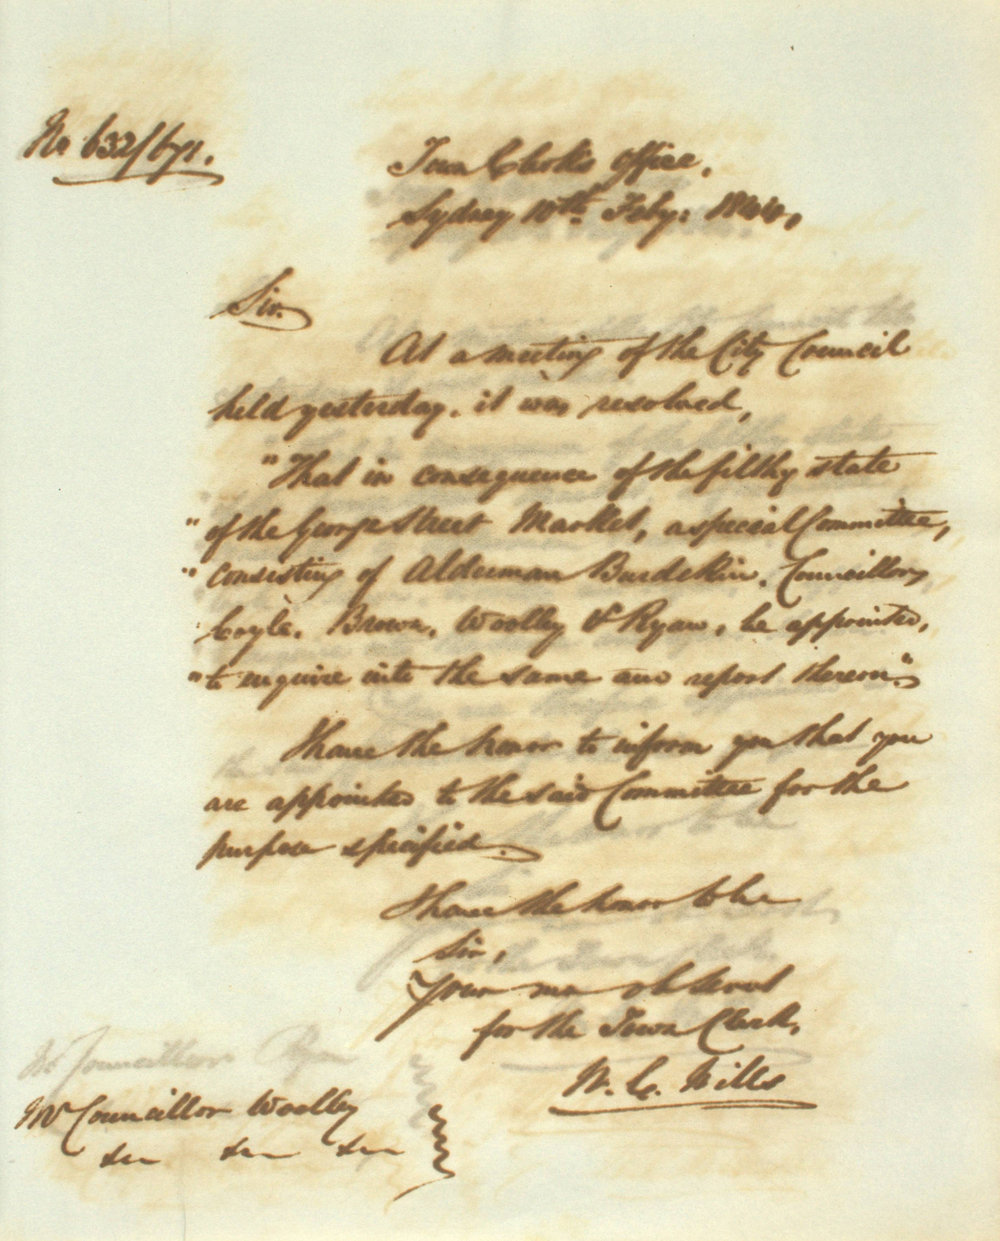 No 632/671.
Town Clerk's Office,
Sydney 10th Feby: 1844,
Sir.
At a meeting of the City Council
held yesterday, it was resolved,
"That in consequence of the filthy state
"of the George Street Market, a special Committee,
"consisting of Alderman Burdekin, Councillors
Coyle, Brown, Woolley & Ryan, be appointed,
"to enquire into the same and report thereon".
I have the honor to inform you that you
are appointed to the said Committee for the
purpose specified.
I have the honor to be
Sir,
Your mo obt Servt
for the Town Clerk,
W. C. Wills
Mr Councillor Ryan
Mr Councillor Woolley
&c &c &c